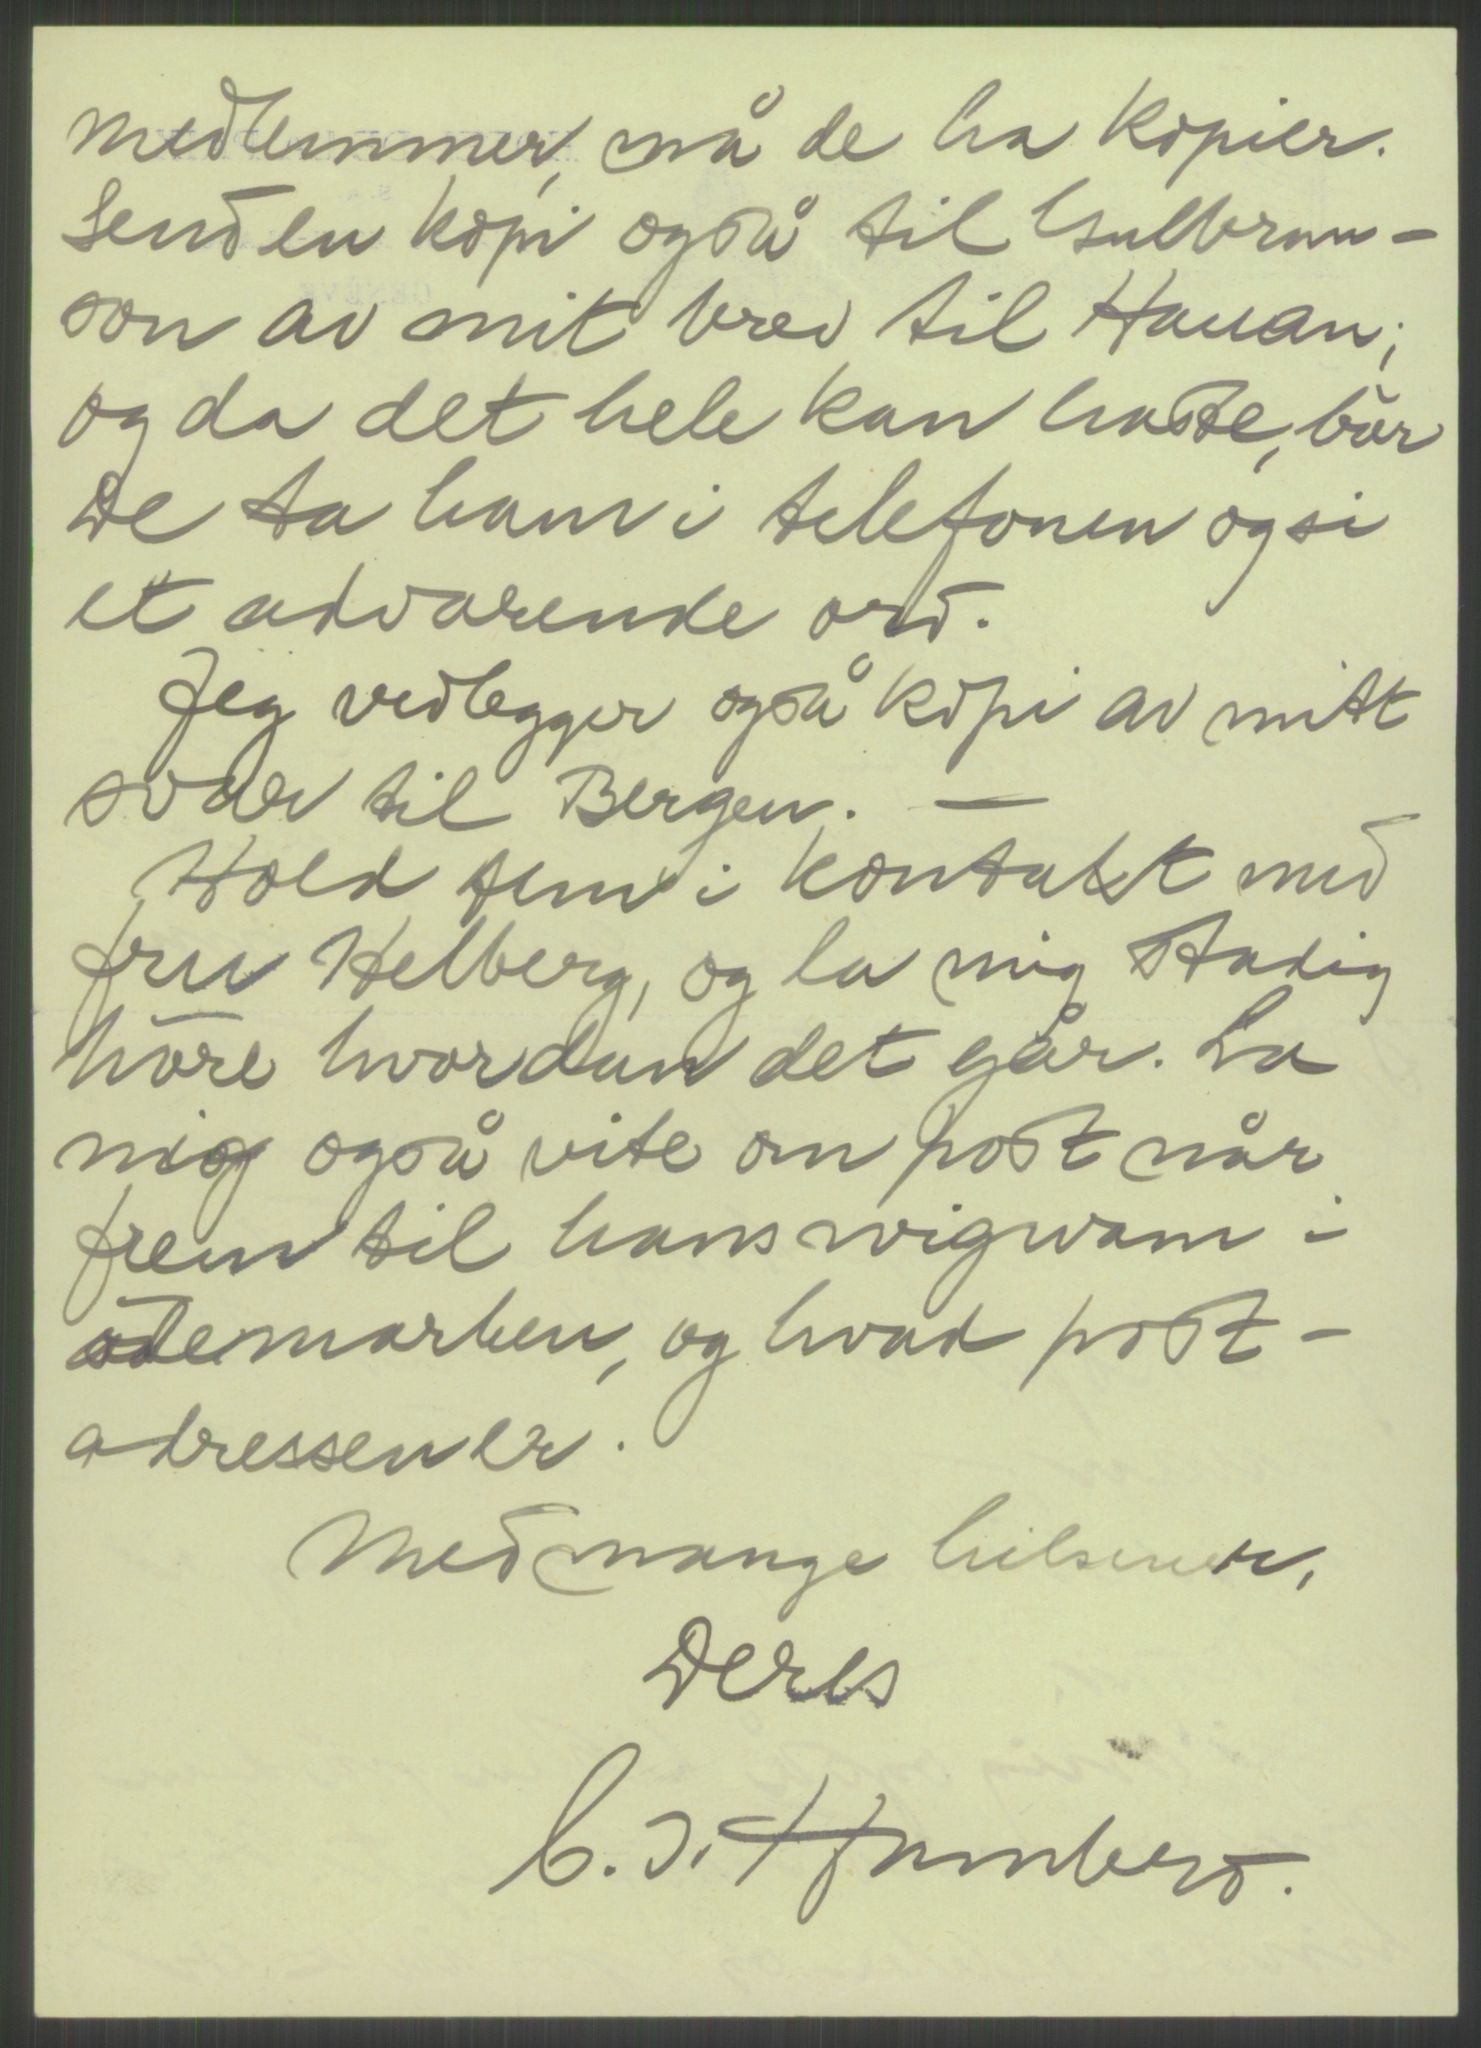 medlemmer, må de ha kopier.
Send en kopi også til Gulbran-
son av mit brev til Hauan;
og da det hele kan haste, bør
De ta ham i telefonen og si
et advarende ord.
Jeg vedlegger også kopi av mitt
svar til Bergen. —
Hold dem i kontakt med
fru Helberg, og la mig stadig
høre hvordan det går. La
mig også vite om post når
frem til hans wigwam i
ødemarken, og hvad post-
adressen er.
Med mange hilsener,
Deres
C. J. Hambro.